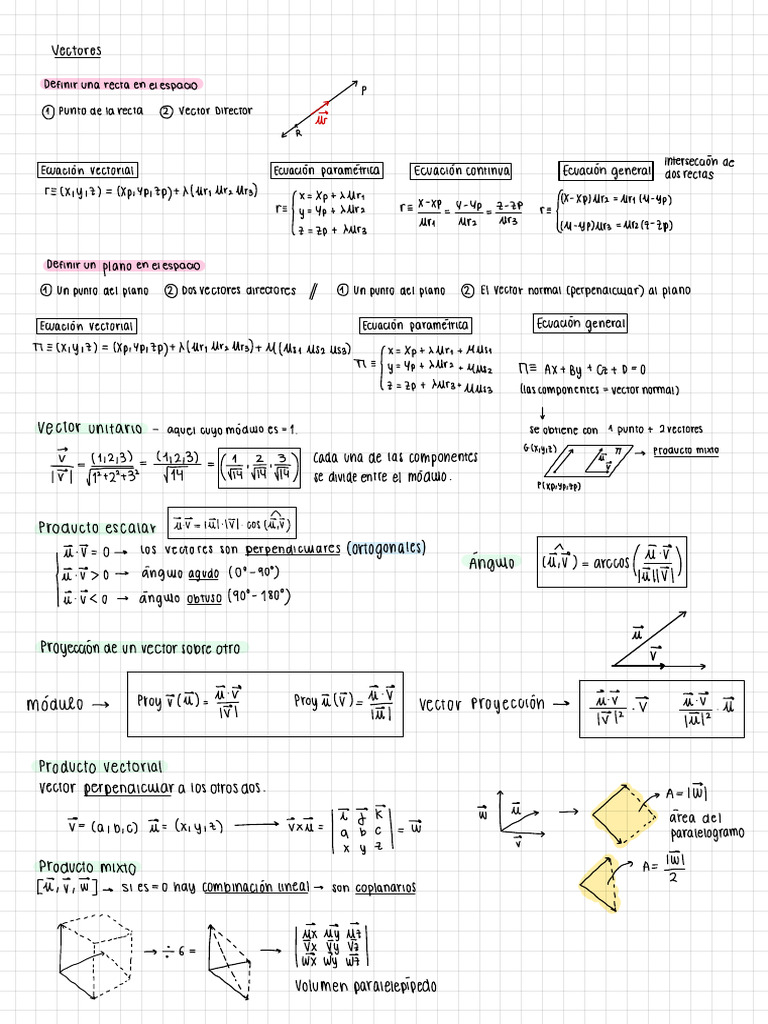 Vectores
Definir una recta en el espacio
① Punto de la recta ② Vector Director
P
R
u⃗r
Ecuación vectorial
r≡(x,y,z) = (xp,yp,zp)+λ(ur1 ur2 ur3)
Ecuación paramétrica
r≡ { x = xp + λur1
y = yp + λur2
z = zp + λur3
Ecuación continua
r≡ x-xp/ur1 = y-yp/ur2 = z-zp/ur3
Ecuación general intersección de dos rectas
r≡ { (x-xp)ur2 = ur1(y-yp)
(y-yp)ur3 = ur2(z-zp)
Definir un plano en el espacio
① Un punto del plano ② Dos vectores directores // ① Un punto del plano ② El vector normal (perpendicular) al plano
Ecuación vectorial
π≡(x,y,z) = (xp,yp,zp)+λ(ur1 ur2 ur3)+μ(us1 us2 us3)
Ecuación paramétrica
π≡ { x = xp + λur1 + μus1
y = yp + λur2 + μus2
z = zp + λur3 + μus3
Ecuación general
π≡ Ax + By + Cz + D = 0
(las componentes = vector normal)
↓
se obtiene con 1 punto + 2 vectores
G(x,y,z) π u⃗ v⃗ → Producto mixto
P(xp,yp,zp)
Vector unitario – aquel cuyo módulo es = 1.
v⃗/|v⃗| = (1,2,3)/√1²+2²+3² = (1,2,3)/√14 = (1/√14, 2/√14, 3/√14) Cada una de las componentes
se divide entre el módulo.
Producto escalar u⃗·v⃗ = |u⃗|·|v⃗|·cos(u⃗,v⃗)
u⃗·v⃗ = 0 → los vectores son perpendiculares (ortogonales)
u⃗·v⃗ > 0 → ángulo agudo (0°-90°)
u⃗·v⃗ < 0 → ángulo obtuso (90°-180°)
Ángulo (u⃗,v⃗) = arccos(u⃗·v⃗/|u⃗||v⃗|)
Proyección de un vector sobre otro
u⃗
v⃗
módulo → Proy v⃗(u⃗) = u⃗·v⃗/|v⃗| Proy u⃗(v⃗) = u⃗·v⃗/|u⃗| Vector Proyección → u⃗·v⃗/|v⃗|² · v⃗ u⃗·v⃗/|u⃗|² · u⃗
Producto vectorial
Vector perpendicular a los otros dos.
v⃗ = (a,b,c) u⃗ = (x,y,z) → v⃗xu⃗ = | i⃗ j⃗ k⃗
a b c
x y z | = w⃗
w⃗ u⃗ v⃗ → A = |w⃗|
área del
paralelogramo
A = |w⃗|/2
Producto mixto
[u⃗, v⃗, w⃗] → si es = 0 hay combinación lineal → son coplanarios
→ ÷ 6 = → | u⃗x u⃗y u⃗z
v⃗x v⃗y v⃗z
w⃗x w⃗y w⃗z |
Volumen paralelepípedo